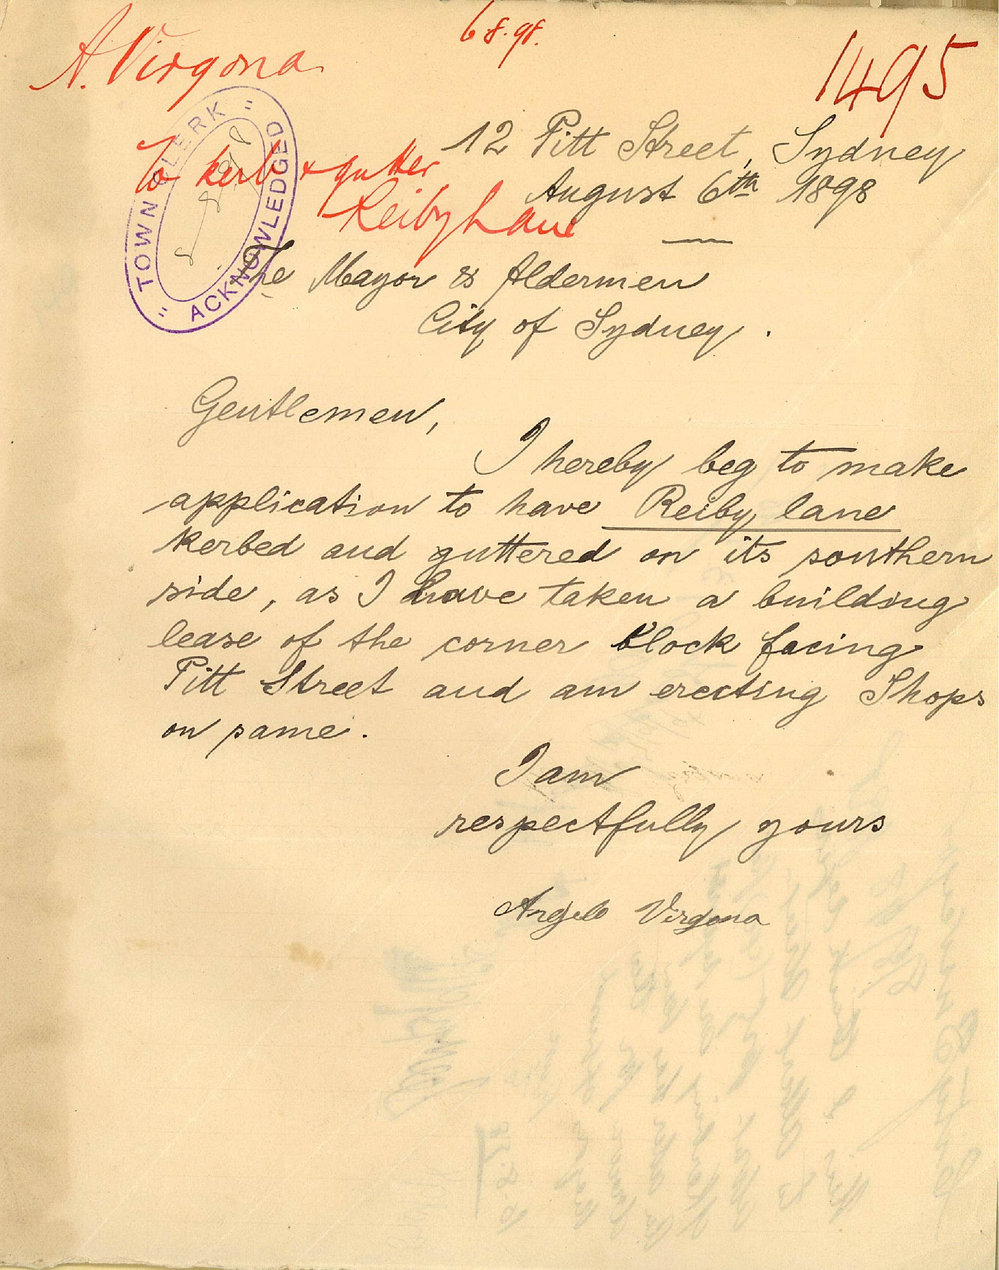 6.8.98.
A. Virgona
1495
12 Pitt Street, Sydney
To kerb & gutter
August 6th 1898
Reiby Lane
TOWN CLERK
ACKNOWLEDGED
The Mayor & Aldermen
City of Sydney.
Gentlemen,
I hereby beg to make
application to have Reiby lane
kerbed and guttered on its southern
side, as I have taken a building
lease of the corner block facing
Pitt Street and am erecting Shops
on same.
I am
respectfully yours
Angelo Virgona